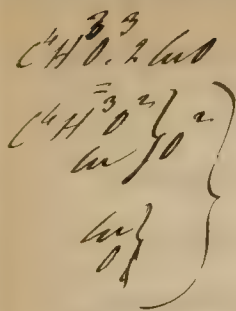 C⁴H³O³. 2CuO
C⁴H³O² } O²
Cu
Cu }
O